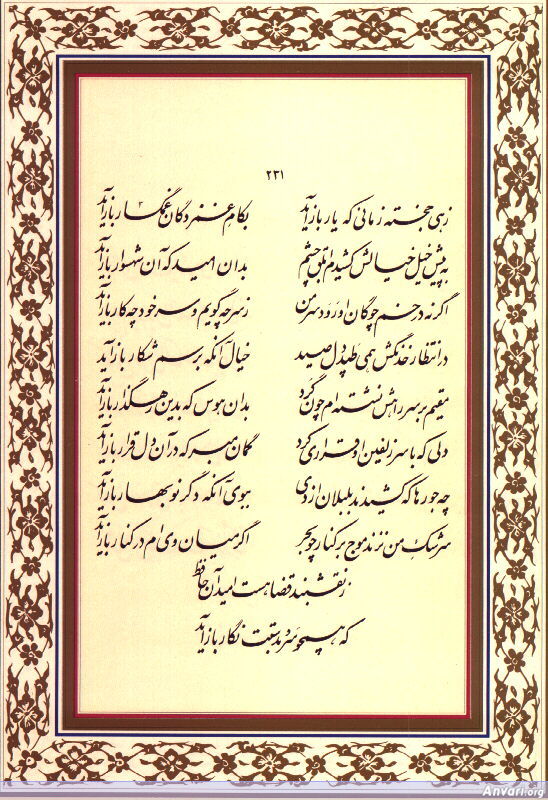 ۲۳۱
زهی خجسته زمانی که یار بازآید بکام غمزدگان غمگسار بازآید
به پیش خیل خیالش کشیدم ابلق چشم بدان امید که آن شهسوار بازآید
اگر نه در خم چوگان او رود سر من ز سر چه گویم و سر خود چه کار بازآید
در انتظار خدنگش همی طپد دل صید خیال آنکه برسم شکار بازآید
مقیم بر سر راهش نشسته‌ام چون گرد بدان هوس که بدین رهگذار بازآید
دلی که با سر زلفین او قراری کرد گمان مبر که در آن دل قرار بازآید
چه جورها که کشیدند بلبلان از دی ببوی آنکه دگر نوبهار بازآید
سرشک من نزند موج بر کنار چو بحر اگر میان وی ام در کنار بازآید
ز نقشبند قضا هست امید آن حافظ
که همچو سرو بدستت نگار بازآید
Anvari.org